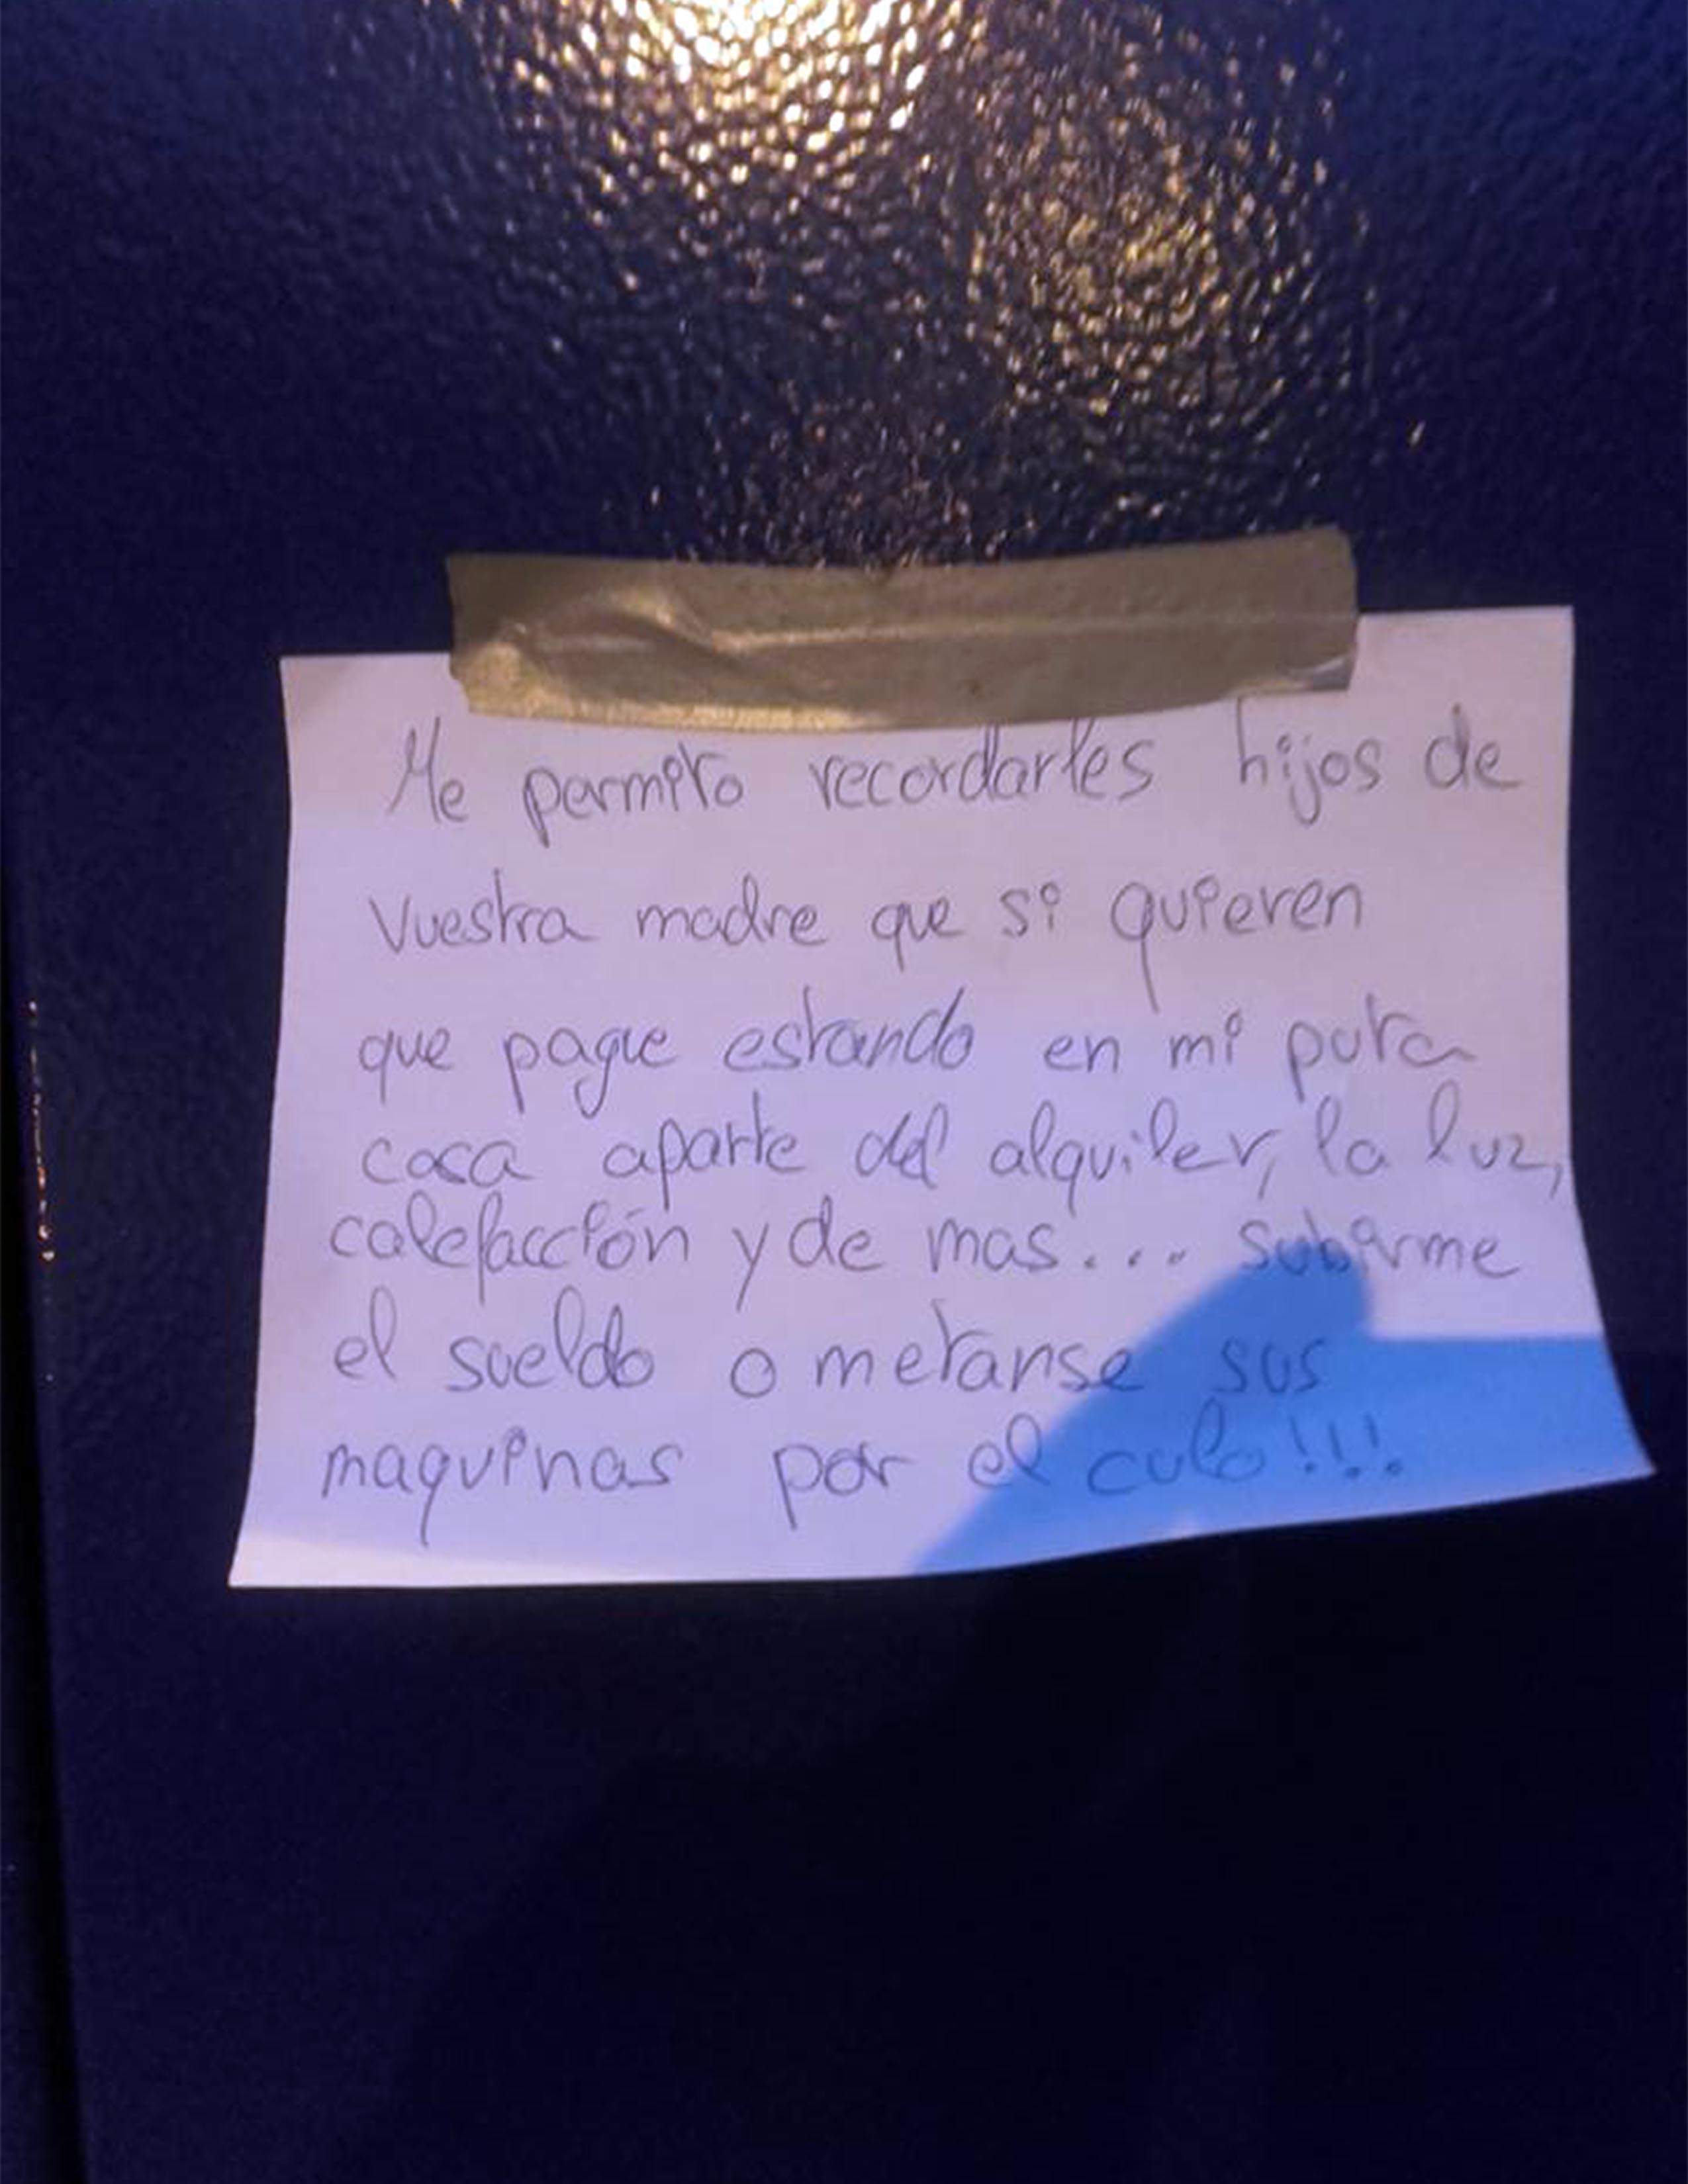 Me permito recordarles hijos de
vuestra madre que si quieren
que pague estando en mi puta
casa aparte del alquiler, la luz,
calefacción y de mas... subirme
el sueldo o metanse sus
maquinas por el culo!!!